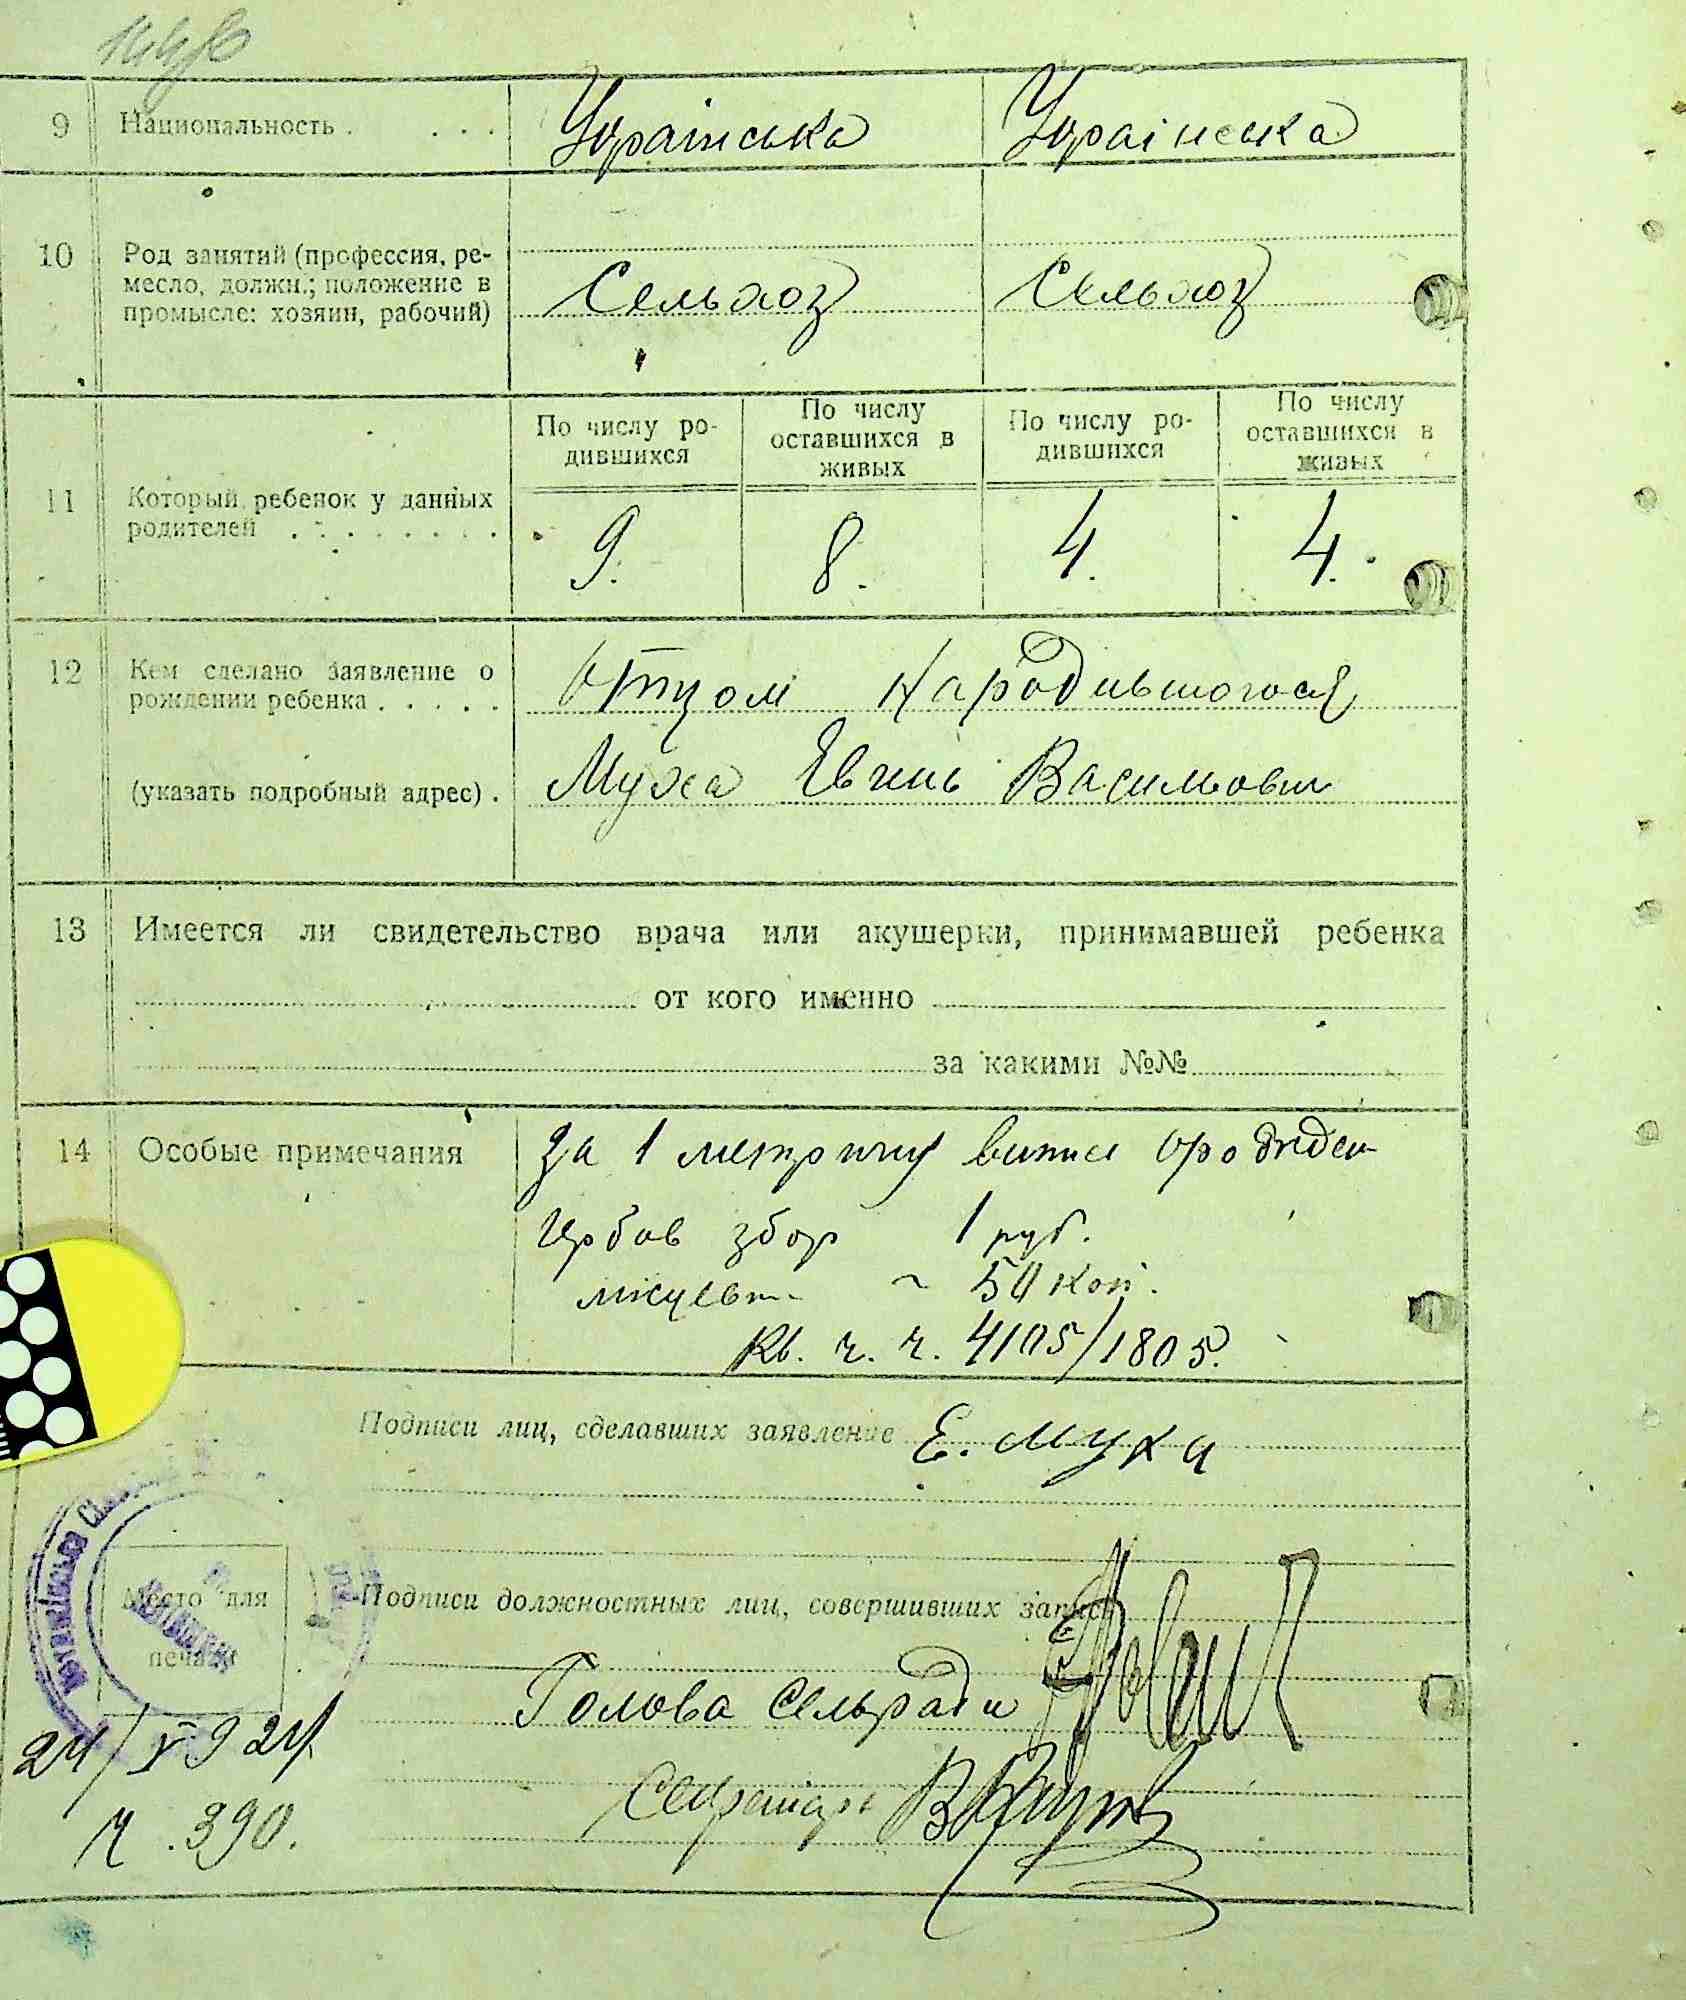 9 Национальность . . . . Українська Українська
10 Род занятий (профессия, ре-
месло, должн.; положение в
промысле: хозяин, рабочий)
Сельхоз Сельхоз
По числу ро-
дившихся
По числу
оставшихся в
живых
По числу ро-
дившихся
По числу
оставшихся в
живых
11 Который ребенок у данных
родителей . . . . . . .
9. 8. 4. 4.
12 Кем сделано заявление о
рождении ребенка . . . . .
Отцом народившогося
(указать подробный адрес) .
Муха Евгень Васильович
13 Имеется ли свидетельство врача или акушерки, принимавшей ребенка
от кого именно
за какими №№
14 Особые примечания
За 1 метричну випис
збор 1 руб.
50 коп.
Кв. ч. ч. 4105/1805.
Подписи лиц, сделавших заявление Е. Муха
Место для
печати
Подписи должностных лиц, совершивших запись
Голова сельради
24/V 924
Секретарь
Ч. 390.